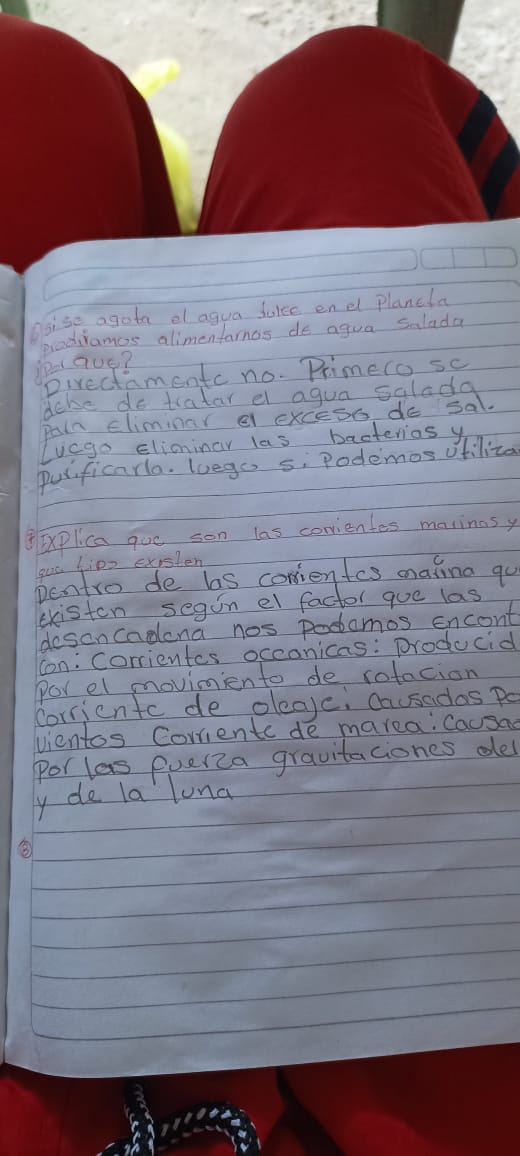 si se agota el agua dulce en el Planeta
prodriamos alimentarnos de agua Salada
¿Por que?
Directamente no. Primero se
debe de tratar el agua salada
Para eliminar el exceso de sal.
Luego Eliminar las bacterias y
purificarla. luego si Podemos utiliza
⑦ Explica que son las corrientes marinas y
que tipo existen
Dentro de las corrientes marina qu
existen según el factor que las
desencadena nos Podemos Encont
con: Corrientes occanicas: Producid
Por el movimiento de rotacion
Corriente de oleaje: Causadas Po
vientos Corriente de marea: Causa
Por las fuerza gravitaciones del
y de la luna
⑧